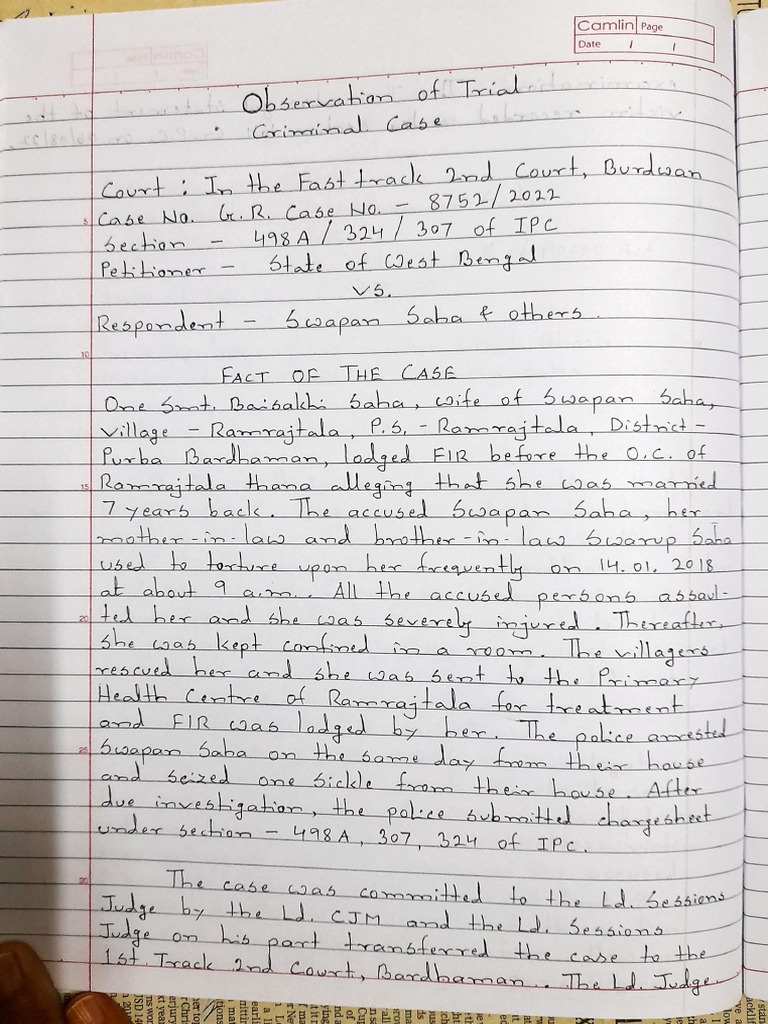 Camlin Page
Date / /
Observation of Trial
Criminal Case
Court : In the Fast track 2nd Court, Burdwan
5 Case No. G.R. Case No. - 8752/2022
Section - 498A/324/307 of IPC
Petitioner - State of West Bengal
VS.
Respondent - Swapan Saha & others.
10
FACT OF THE CASE
One Smt. Baisakhi Saha, wife of Swapan Saha,
Village - Ramrajtala, P.S. - Ramrajtala, District -
Purba Bardhaman, lodged FIR before the O.C. of
15 Ramrajtala thana alleging that she was married
7 years back. The accused Swapan Saha, her
mother-in-law and brother-in-law Swarup Saha
used to torture upon her frequently on 14.01.2018
at about 9 a.m.. All the accused persons assaul-
20 ted her and she was severely injured. Thereafter,
she was kept confined in a room. The villagers
rescued her and she was sent to the Primary
Health Centre of Ramrajtala for treatment
and FIR was lodged by her. The police arrested
25 Swapan Saha on the same day from their house
and seized one sickle from their house. After
due investigation, the police submitted chargesheet
under section - 498A, 307, 324 of IPC.
30 The case was committed to the Ld. Sessions
Judge by the Ld. CJM and the Ld. Sessions
Judge on his part transferred the case to the
1st Track 2nd Court, Bardhaman.. The Ld. Judge